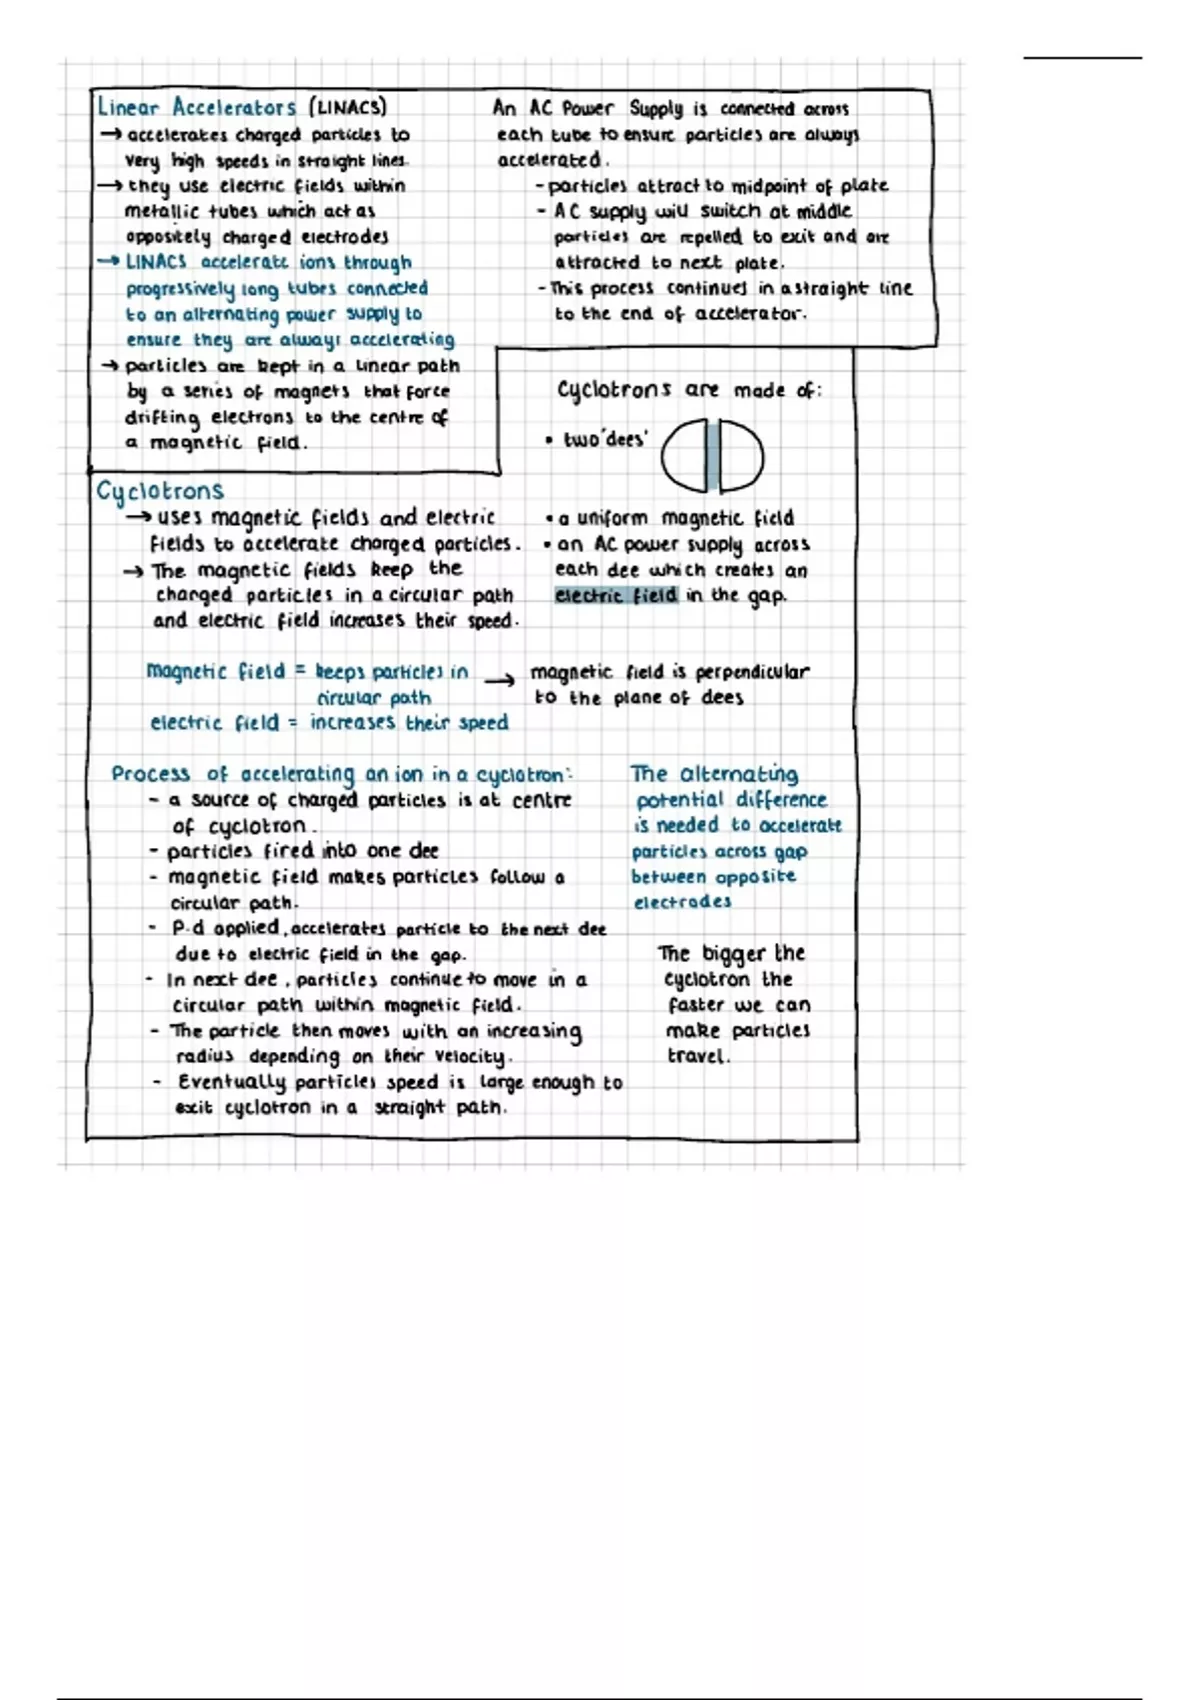 Linear Accelerators (LINACS)
→ accelerates charged particles to
very high speeds in straight lines.
→ they use electric fields within
metallic tubes which act as
oppositely charged electrodes
→ LINACS accelerate ions through
progressively long tubes connected
to an alternating power supply to
ensure they are always accelerating
→ particles are kept in a linear path
by a series of magnets that force
drifting electrons to the centre of
a magnetic field.
An AC Power Supply is connected across
each tube to ensure particles are always
accelerated.
- particles attract to midpoint of plate
- AC supply will switch at middle
particles are repelled to exit and are
attracted to next plate.
- This process continues in a straight line
to the end of accelerator.
Cyclotrons are made of:
• two 'dees'
• a uniform magnetic field
• an AC power supply across
each dee which creates an
electric field in the gap.
Cyclotrons
→ uses magnetic fields and electric
fields to accelerate charged particles.
→ The magnetic fields keep the
charged particles in a circular path
and electric field increases their speed.
magnetic field = keeps particles in
circular path
electric field = increases their speed
→ magnetic field is perpendicular
to the plane of dees
Process of accelerating an ion in a cyclotron:
- a source of charged particles is at centre
of cyclotron.
- particles fired into one dee
- magnetic field makes particles follow a
circular path.
- P.d applied, accelerates particle to the next dee
due to electric field in the gap.
- In next dee, particles continue to move in a
circular path within magnetic field.
- The particle then moves with an increasing
radius depending on their velocity.
- Eventually particles speed is large enough to
exit cyclotron in a straight path.
The alternating
potential difference
is needed to accelerate
particles across gap
between opposite
electrodes
The bigger the
cyclotron the
faster we can
make particles
travel.